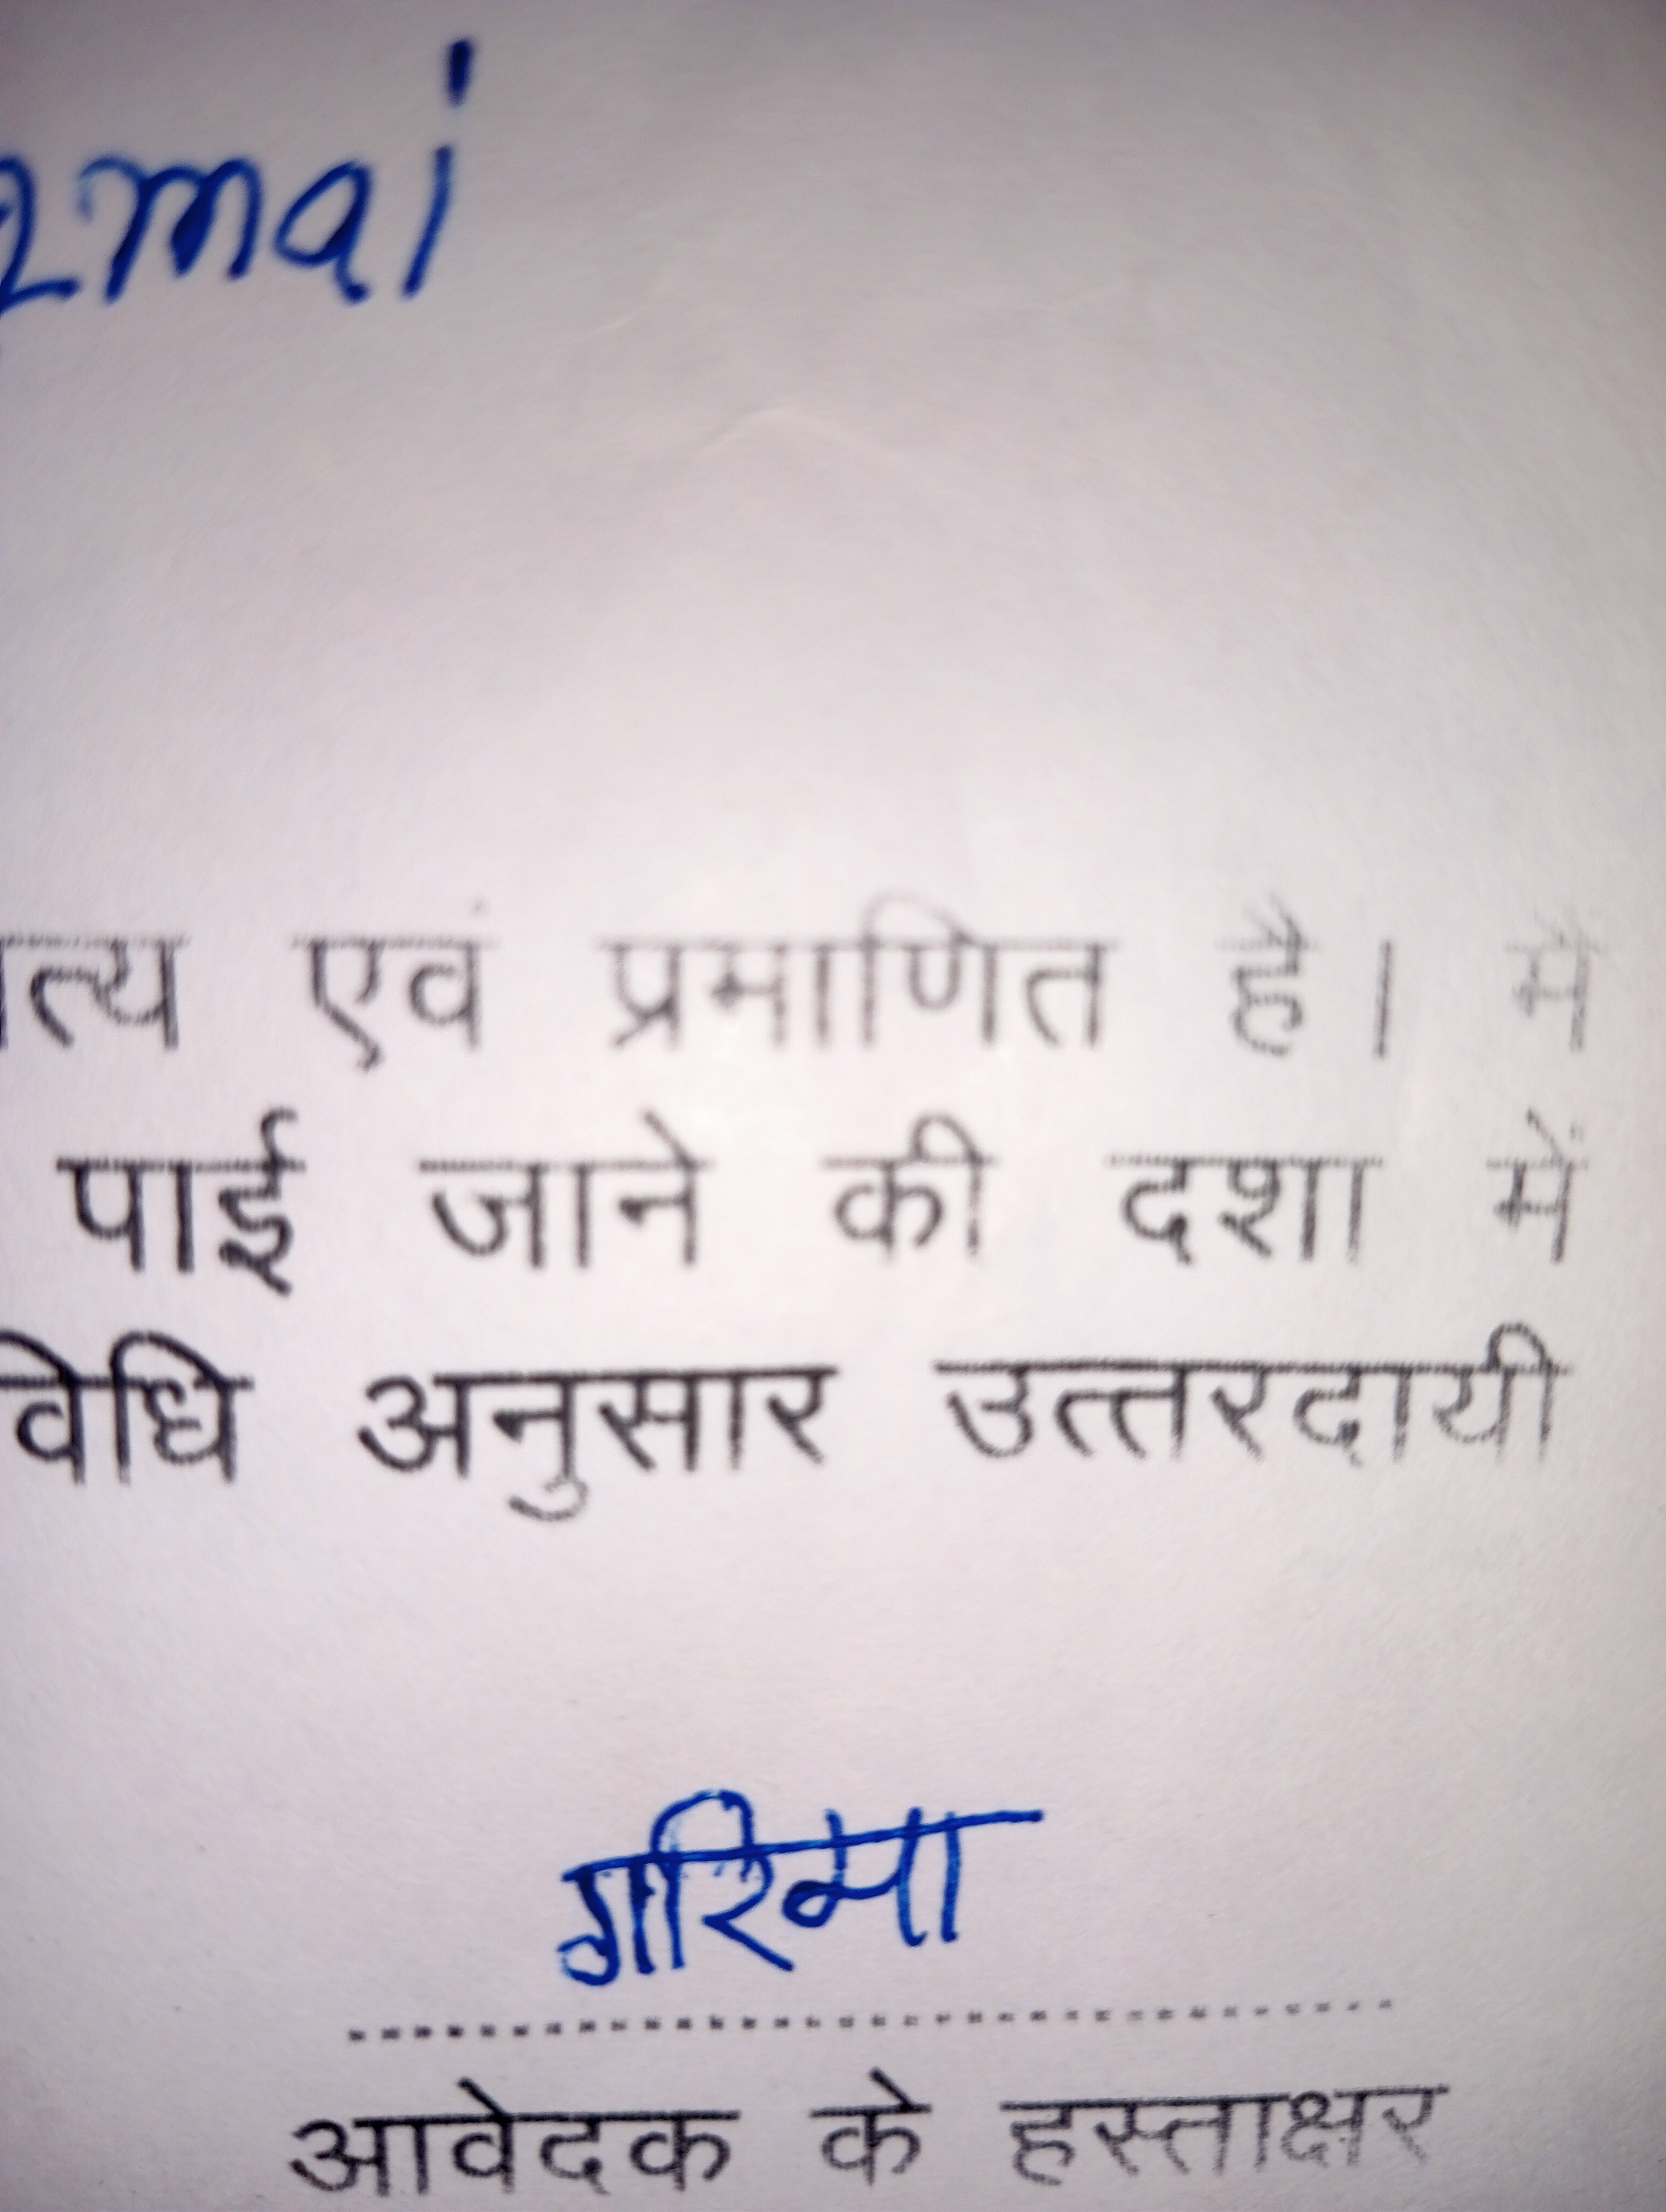 mai
एवं प्रमाणित है। मैं
पाई जाने की दशा में
विधि अनुसार उत्तरदायी
गरिमा
आवेदक के हस्ताक्षर